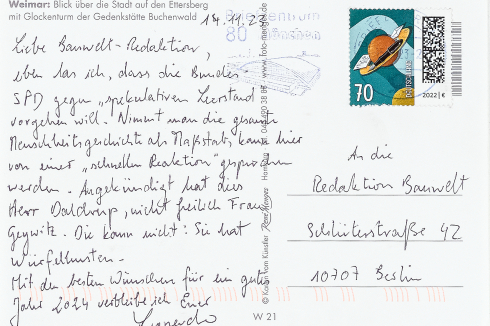 Weimar: Blick über die Stadt auf den Ettersberg
mit Glockenturm der Gedenkstätte Buchenwald
14.11.2
Briefzentrum
80 München
Liebe Bauwelt-Redaktion,
eben las ich, dass die Bundes-
SPD gegen „spekulativen Leerstand
vorgehen will. Nimmt man die gesamte
Menschheitsgeschichte als Maßstab, kann hier
von einer „schnellen Reaktion" gesprochen
werden. Angekündigt hat dies
Herr Daldrup, nicht freilich Frau
Geywitz. Die kann nicht: Sie hat
Würfelhusten.
Mit den besten Wünschen für ein gutes
Jahr 2024 verbleibe ich Euer
70
DEUTSCHLAND
2022 | €
An die
Redaktion Bauwelt
Schlüterstraße 42
10707 Berlin
W 21